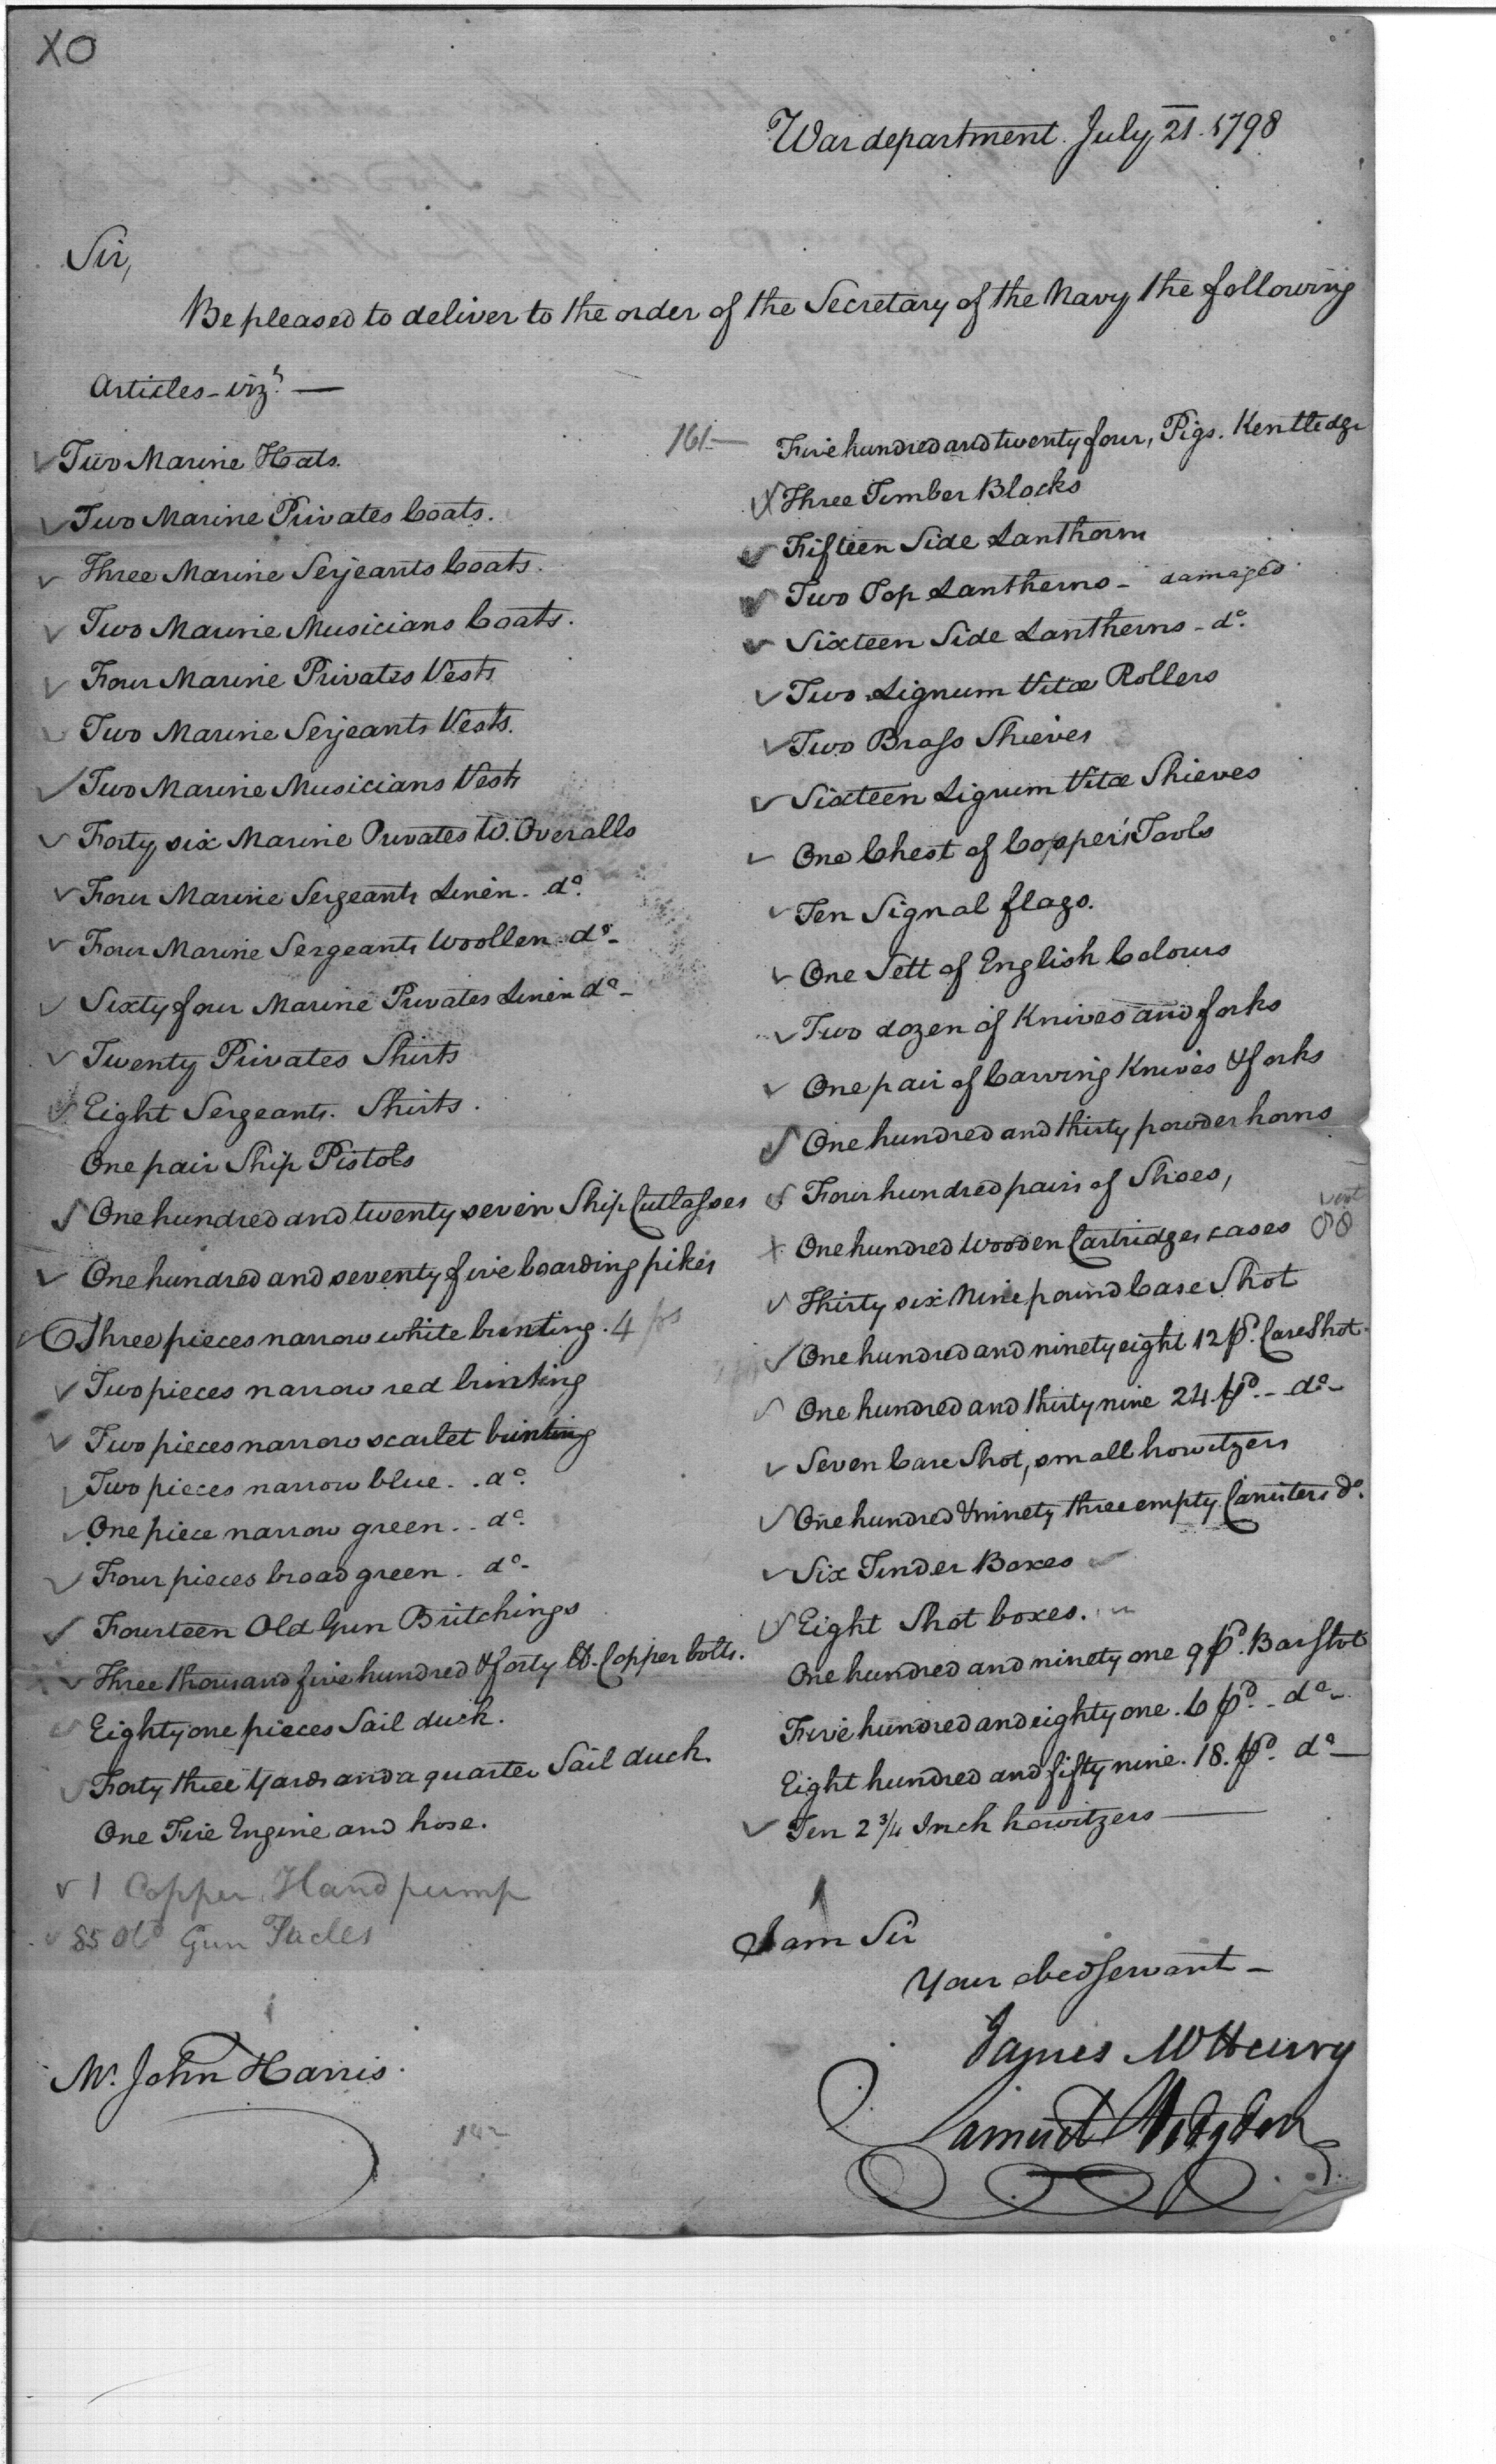 XO
War department July 21. 1798
Sir,
Be pleased to deliver to the order of the Secretary of the Navy the following
Articles - vizt. —
Two Marine Hats.
Two Marine Privates Coats.
Three Marine Serjeants Coats.
Two Marine Musicians Coats.
Four Marine Privates Vests
Two Marine Serjeants Vests.
Two Marine Musicians Vests
Forty six Marine Privates W. Overalls
Four Marine Sergeants Linen - do.
Four Marine Sergeants Woollen - do -
Sixty four Marine Privates Linen do -
Twenty Privates Shirts
Eight Sergeants. Shirts.
One pair Ship Pistols
One hundred and twenty seven Ship Cutlasses
One hundred and seventy five boarding pikes
Three pieces narrow white bunting. 4 ps
Two pieces narrow red bunting
Two pieces narrow scarlet bunting
Two pieces narrow blue - . do.
One piece narrow green . . do.
Four pieces broad green - do -
Fourteen Old Gun Britchings
Three thousand five hundred & forty lb. Copper bolts.
Eighty one pieces Sail duck.
Forty three yards and a quarter Sail duck.
One Fire Engine and hose.
1 Copper Hand pump
85 old Gun Tacles
161 —
Five hundred and twenty four, Pigs. Kentledge
Three Timber Blocks
Fifteen Side Lanthorns
Two Top Lantherns - damaged
Sixteen Side Lantherns - do.
Two Lignum Vitæ Rollers
Two Brass Shieves
Sixteen Lignum Vitæ Shieves
One Chest of Cooper's Tools
Ten Signal flags.
One Sett of English Colours
Two dozen of Knives and forks
One pair of Carving Knives & forks
One hundred and thirty powder horns
Four hundred pairs of Shoes,
One hundred Wooden Cartridges cases 88
Thirty six Nine pound Case Shot
One hundred and ninety eight 12 pd. Case Shot -
One hundred and thirty nine 24 pd. - do -
Seven Case Shot, small howitzers
One hundred & ninety three empty Canisters do.
Six Tinder Boxes
Eight Shot boxes.
One hundred and ninety one 9 pd. Bar Shot
Five hundred and eighty one. 6 pd. - do -
Eight hundred and fifty nine. 18. pd. do —
Ten 2 3/4 Inch howitzers —
I am Sir
Your obed servant -
James McHenry
Samuel Hodgdon
Mr. John Harris.